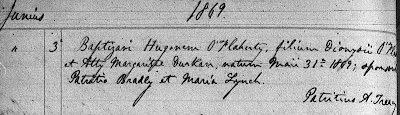 Junius 1869.
" 3° Baptizavi Hugonem O'Flaherty, filium Dionysii O'F
et Margaritæ Durkan, natum Maii 31st 1869; sponsori
Patratio Bradly et Maria Lynch.
Patritius A. Trea